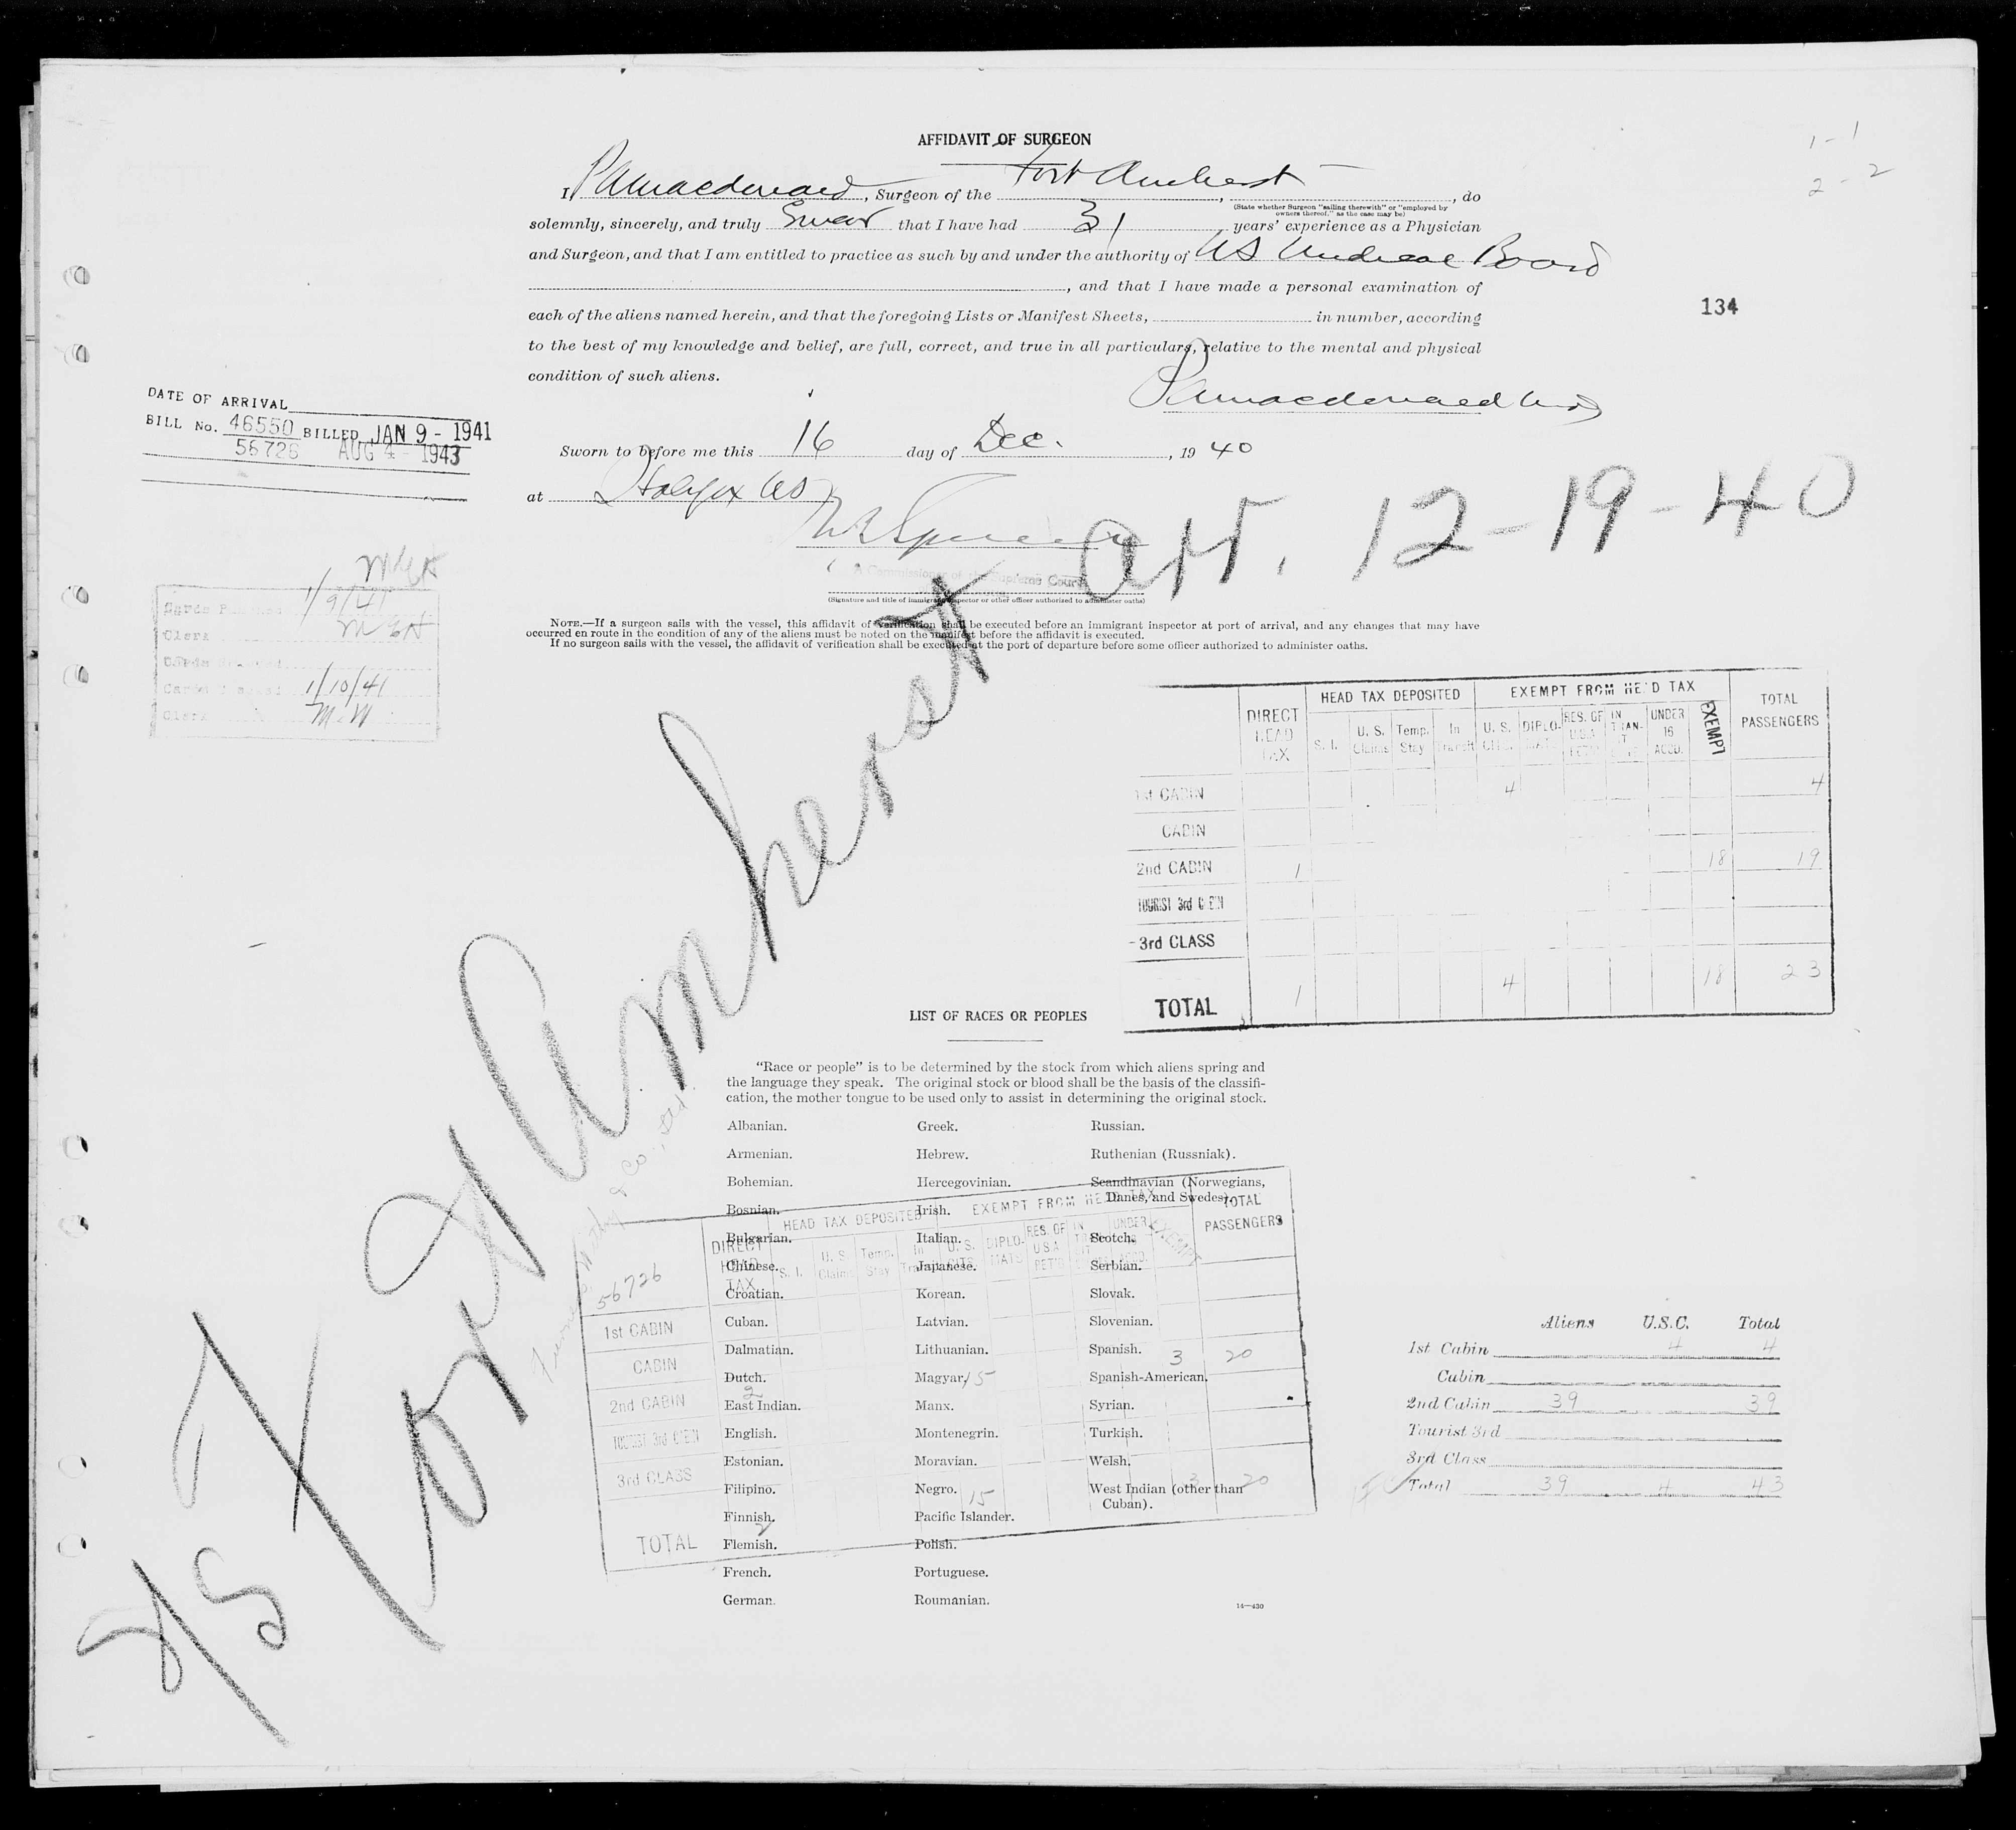 AFFIDAVIT OF SURGEON
1-1
2-2
I, , Surgeon of the Fort Amherst , , do
(State whether Surgeon "sailing therewith" or "employed by
owners thereof," as the case may be)
solemnly, sincerely, and truly Swear that I have had 31 years' experience as a Physician
and Surgeon, and that I am entitled to practice as such by and under the authority of NS Medical Board
, and that I have made a personal examination of
134
each of the aliens named herein, and that the foregoing Lists or Manifest Sheets, in number, according
to the best of my knowledge and belief, are full, correct, and true in all particulars, relative to the mental and physical
condition of such aliens.
DATE OF ARRIVAL
BILL No. 46550 BILLED JAN 9 - 1941
56726 AUG 4 - 1943
Sworn to before me this 16 day of Dec. , 19 40
at Halifax NS
Arr. 12-19-40
A Commissioner of the Supreme Court
(Signature and title of immigrant inspector or other officer authorized to administer oaths)
1/9/41
Clerk
1/10/41
Clerk
NOTE.—If a surgeon sails with the vessel, this affidavit of verification shall be executed before an immigrant inspector at port of arrival, and any changes that may have
occurred en route in the condition of any of the aliens must be noted on the manifest before the affidavit is executed.
If no surgeon sails with the vessel, the affidavit of verification shall be executed at the port of departure before some officer authorized to administer oaths.
S/S Fort Amherst
DIRECT HEAD TAX HEAD TAX DEPOSITED EXEMPT FROM HEAD TAX TOTAL PASSENGERS
S. I. U. S. Claims Temp. Stay In Transit U. S. CITS. DIPLO-MATS RES. OF U.S.A. RET'G IN TRAN-SIT UNDER 16 ACCD. EXEMPT
1st CABIN 4 4
CABIN
2nd CABIN 1 18 19
TOURIST 3rd CABIN
3rd CLASS
TOTAL 1 4 18 23
LIST OF RACES OR PEOPLES
"Race or people" is to be determined by the stock from which aliens spring and
the language they speak. The original stock or blood shall be the basis of the classifi-
cation, the mother tongue to be used only to assist in determining the original stock.
Albanian.
Armenian.
Bohemian.
Bosnian.
Bulgarian.
Chinese.
Croatian.
Cuban.
Dalmatian.
Dutch.
East Indian.
English.
Estonian.
Filipino.
Finnish.
Flemish.
French.
German.
Greek.
Hebrew.
Hercegovinian.
Irish.
Italian.
Japanese.
Korean.
Latvian.
Lithuanian.
Magyar.
Manx.
Montenegrin.
Moravian.
Negro.
Pacific Islander.
Polish.
Portuguese.
Roumanian.
Russian.
Ruthenian (Russniak).
Scandinavian (Norwegians,
Danes, and Swedes).
Scotch.
Serbian.
Slovak.
Slovenian.
Spanish.
Spanish-American.
Syrian.
Turkish.
Welsh.
West Indian (other than
Cuban).
14—430
56726
DIRECT HEAD TAX HEAD TAX DEPOSITED EXEMPT FROM HEAD TAX TOTAL PASSENGERS
S. I. U. S. Claims Temp. Stay In Transit U. S. CITS DIPLO-MATS RES. OF U.S.A. RET'G IN TRAN-SIT UNDER 16 ACCD. EXEMPT
1st CABIN
CABIN
2nd CABIN 2 15 3 20
TOURIST 3rd CABIN
3rd CLASS
TOTAL 2 15 3 20
Aliens U.S.C. Total
1st Cabin 4 4
Cabin
2nd Cabin 39 39
Tourist 3rd
3rd Class
Total 39 4 43